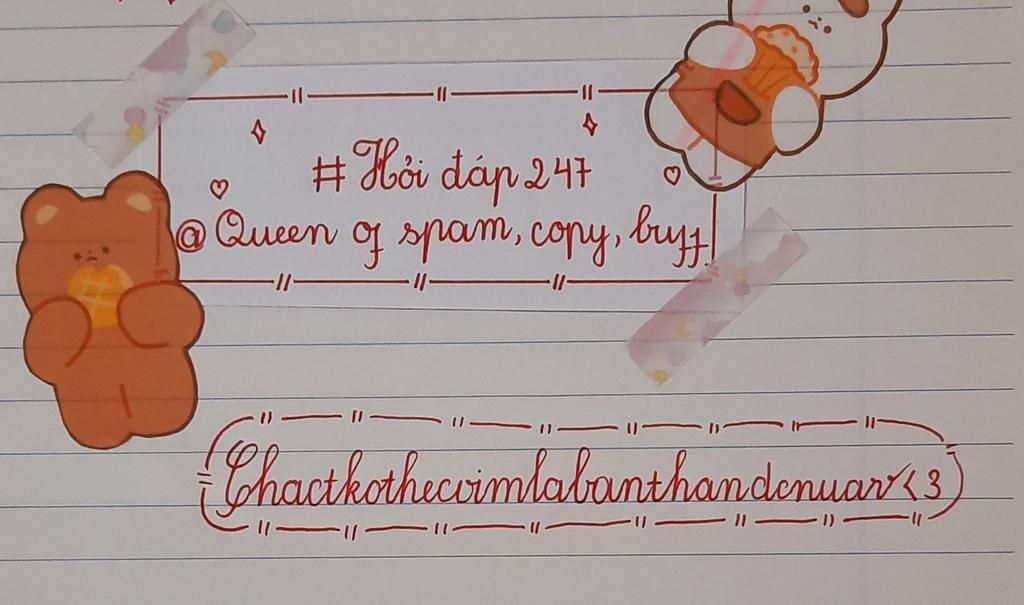 # Hỏi đáp 247
@ Queen of spam, copy, buff.
Chactkothecoimlabanthandcnuar<3